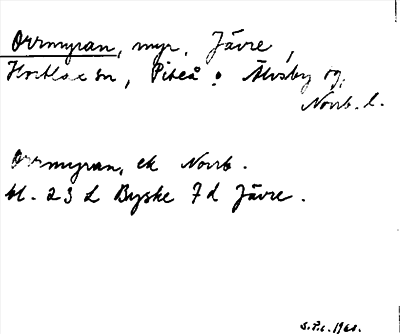 Orrmyran, myr, Jävre,
Hortlax sn, Piteå o Älvsby tg,
Norrb. l.
Orrmyran, ek Norrb.
bl. 23 L Byske 7d Jävre.
S.P.L. 1960.